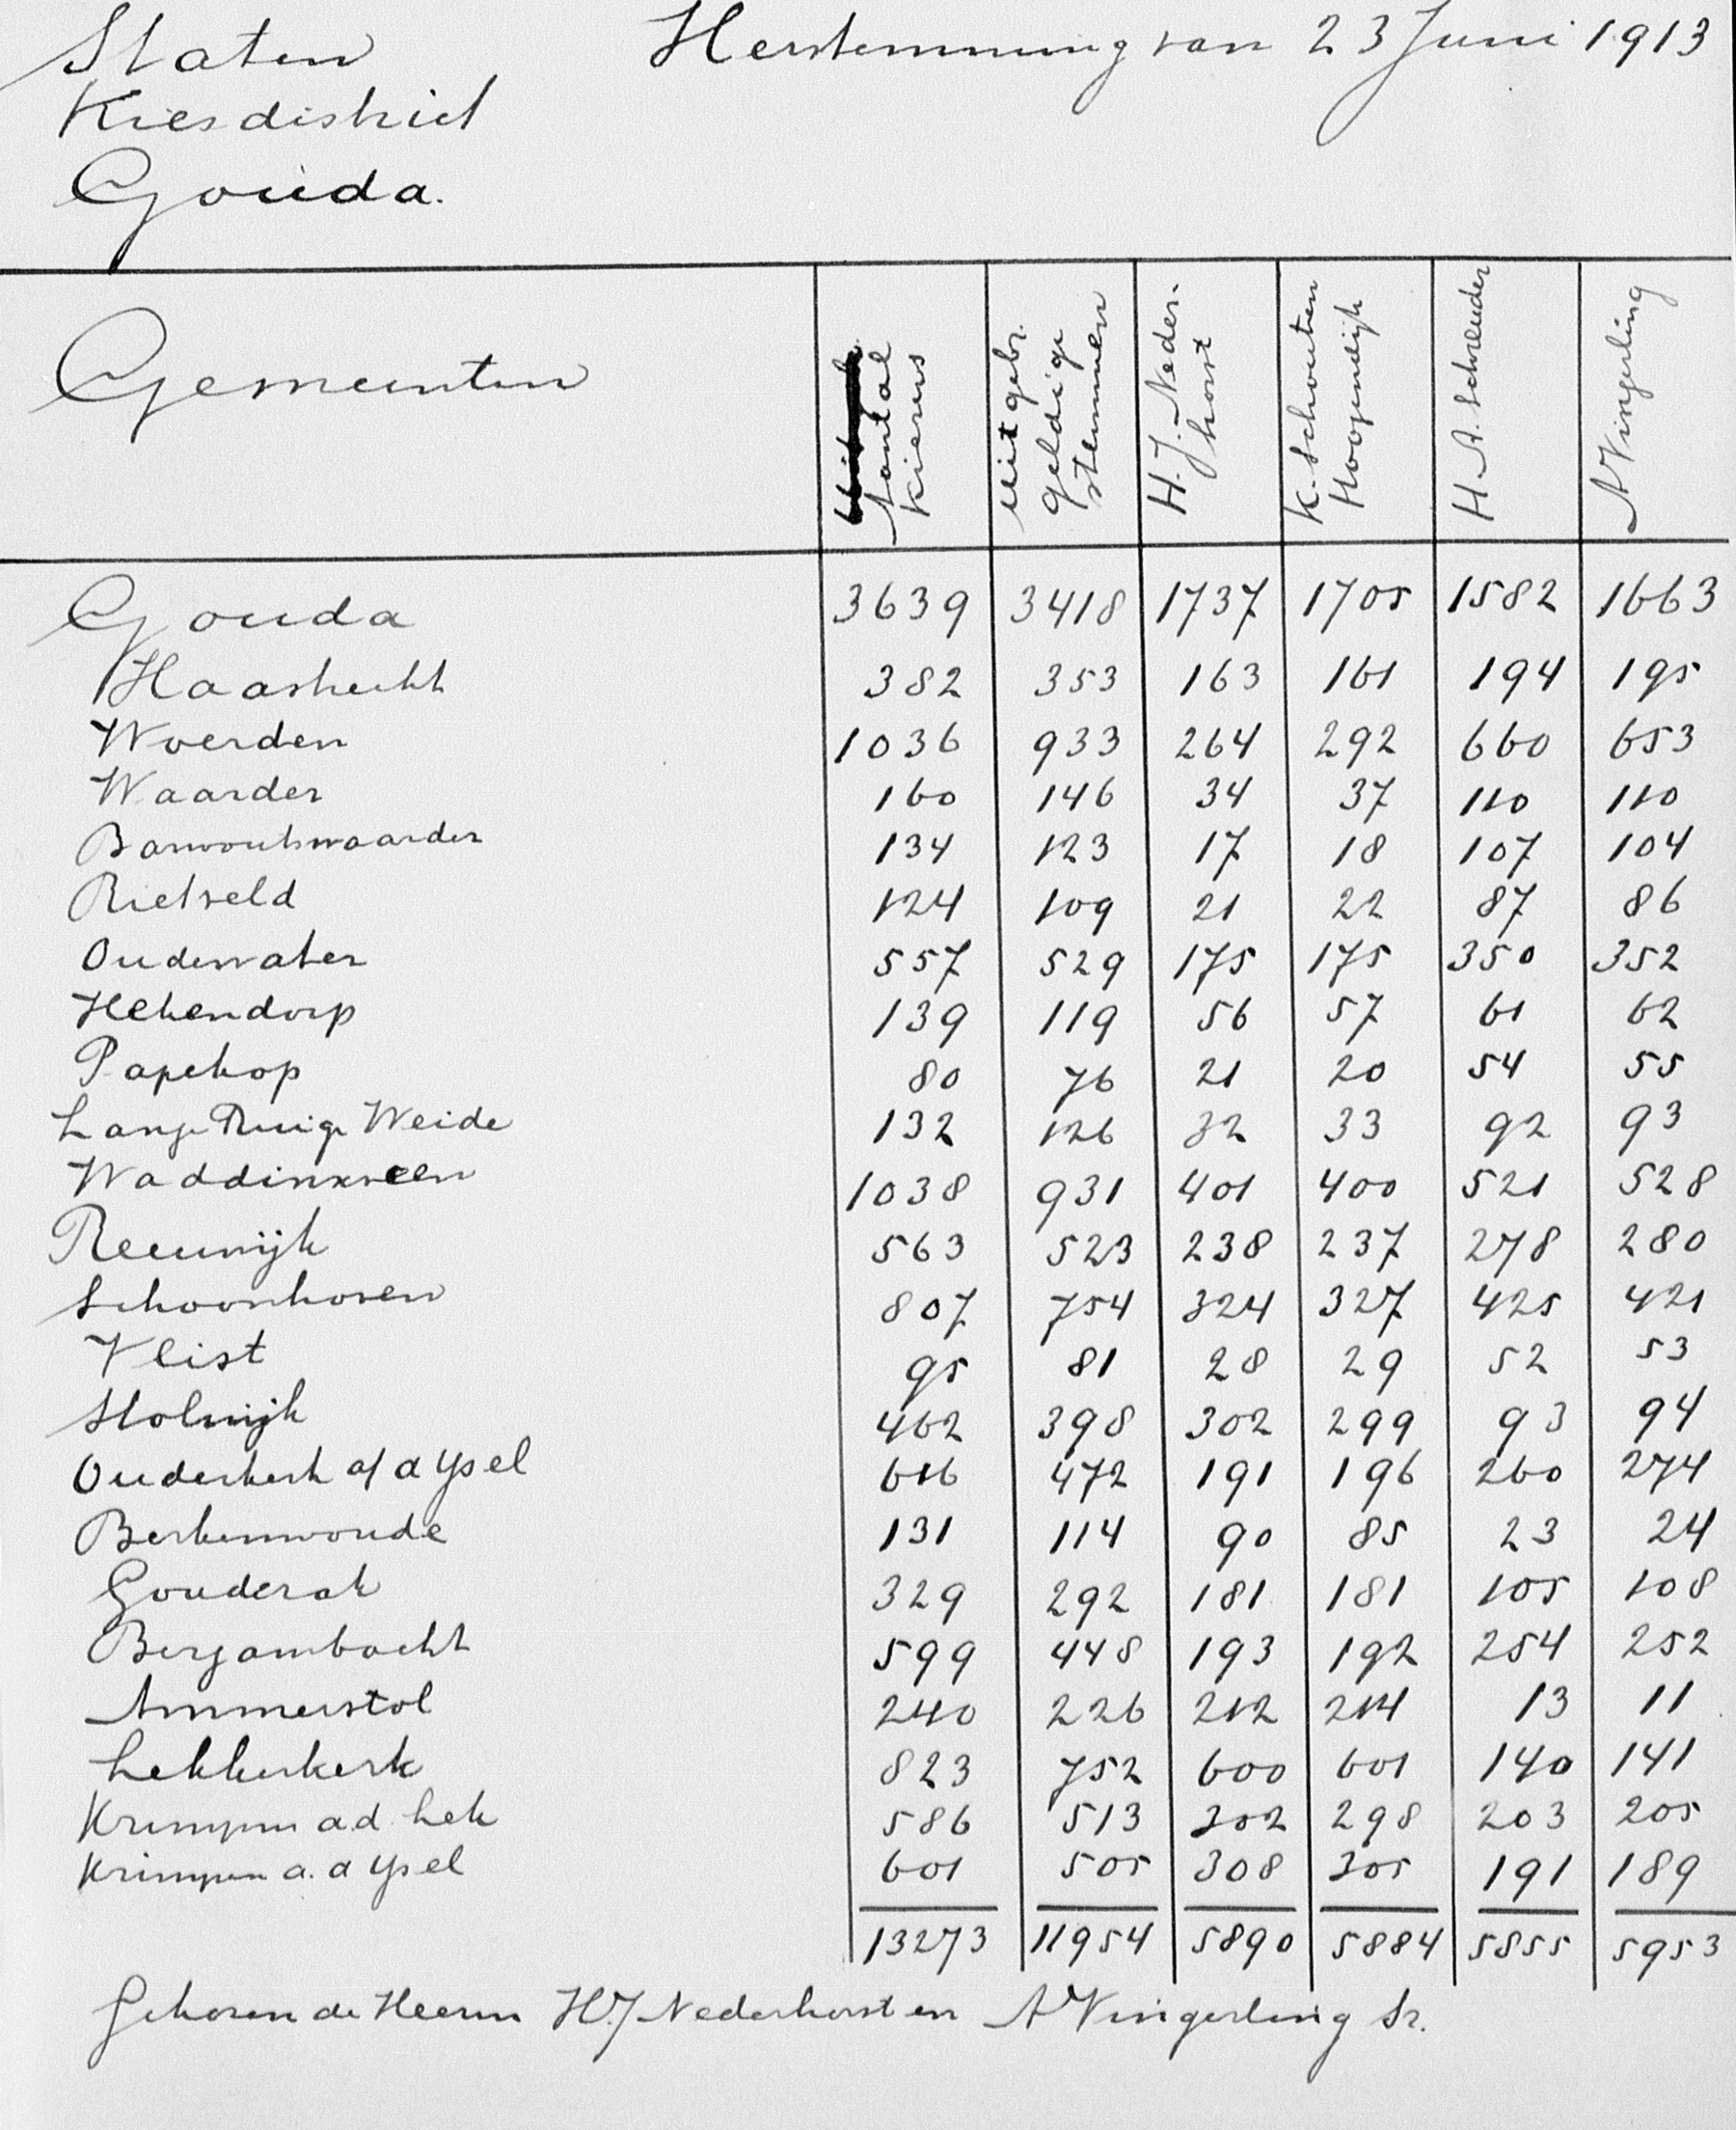 Staten Herstemming van 23 Juni 1913
Kiesdistrict
Gouda.
Gemeenten Aantal kiezers uitgebr. geldige stemmen H.J. Nederhorst K. Schouten Hoogendijk H. A. Schreuder A Vingerling
Gouda 3639 3418 1737 1705 1582 1663
Haastrecht 382 353 163 161 194 195
Woerden 1036 933 264 292 660 653
Waarder 160 146 34 37 110 110
Barwoutswaarder 134 123 17 18 107 104
Rietveld 124 109 21 22 87 86
Oudewater 557 529 175 175 350 352
Hekendorp 139 119 56 57 61 62
Papekop 80 76 21 20 54 55
Lange Ruige Weide 132 126 32 33 92 93
Waddinxveen 1038 931 401 400 521 528
Reeuwijk 563 523 238 237 278 280
Schoonhoven 807 754 324 327 425 421
Vlist 95 81 28 29 52 53
Stolwijk 462 398 302 299 93 94
Ouderkerk a/d Ysel 616 472 191 196 260 274
Berkenwoude 131 114 90 85 23 24
Gouderak 329 292 181 181 105 108
Bergambacht 599 448 193 192 254 252
Ammerstol 240 226 212 214 13 11
Lekkerkerk 823 752 600 601 140 141
Krimpen a.d. Lek 586 513 302 298 203 205
Krimpen a. d Ysel 601 505 308 305 191 189
13273 11954 5890 5884 5855 5953
Gekozen de Heeren H.J Nederhorst en A Vingerling Sr.